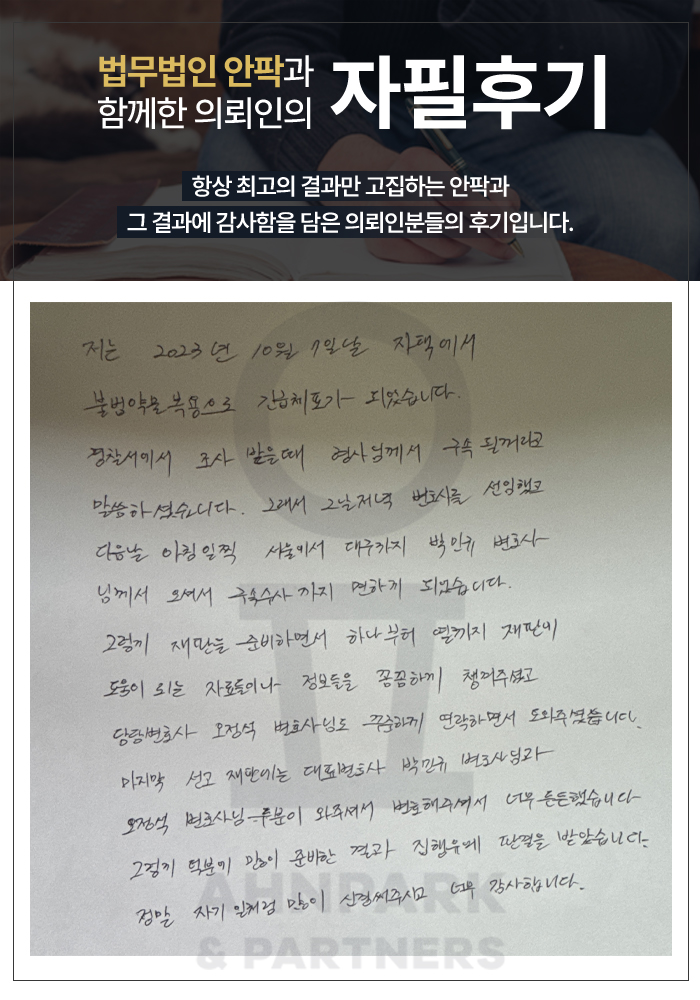 법무법인 안팍과
함께한 의뢰인의
자필후기
항상 최고의 결과만 고집하는 안팍과
그 결과에 감사함을 담은 의뢰인분들의 후기입니다.
저는 2023년 10월 7일날 자택에서
불법약물복용으로 긴급체포가 되었습니다.
경찰서에서 조사 받을때 형사님께서 구속 될꺼라고
말씀하셨습니다. 그래서 그날저녁 변호사를 선임했고
다음날 아침일찍 서울에서 대구까지 박민규 변호사
님께서 오셔서 구속수사까지 면하게 되었습니다.
그렇게 재판을 준비하면서 하나부터 열까지 재판에
도움이 되는 자료들이나 정보들을 꼼꼼하게 챙겨주셨고
담당변호사 오정석 변호사님도 꾸준하게 연락하면서 도와주셨습니다.
마지막 선고 재판에는 대표변호사 박민규 변호사님과
오정석 변호사님 두분이 와주셔서 변호해주셔서 너무 든든했습니다
그렇게 덕분에 많이 준비한 결과 집행유예 판결을 받았습니다.
정말 자기일처럼 많이 신경써주시고 너무 감사합니다.
AHNPARK
& PARTNERS